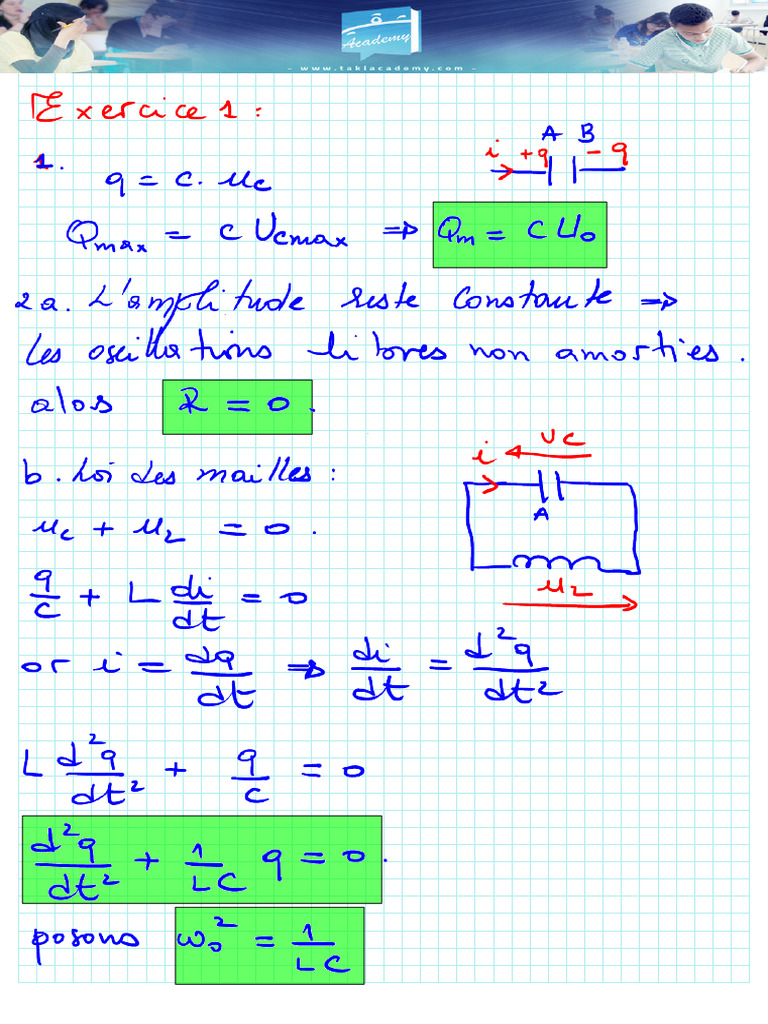 Academy
- www.takiacademy.com -
Exercice 1 :
1.
A B
i +q - q
q = c. uc
Qmax = c Ucmax ⇒ Qm = C U0
2a. L'amplitude reste constante ⇒
Les oscillations libres non amorties.
alos R = 0.
b. Loi des mailles :
uc + uL = 0.
UC
i
A
uL
q/c + L di/dt = 0
or i = dq/dt ⇒ di/dt = d²q/dt²
L d²q/dt² + q/c = 0
d²q/dt² + 1/LC q = 0.
posons ω0² = 1/LC